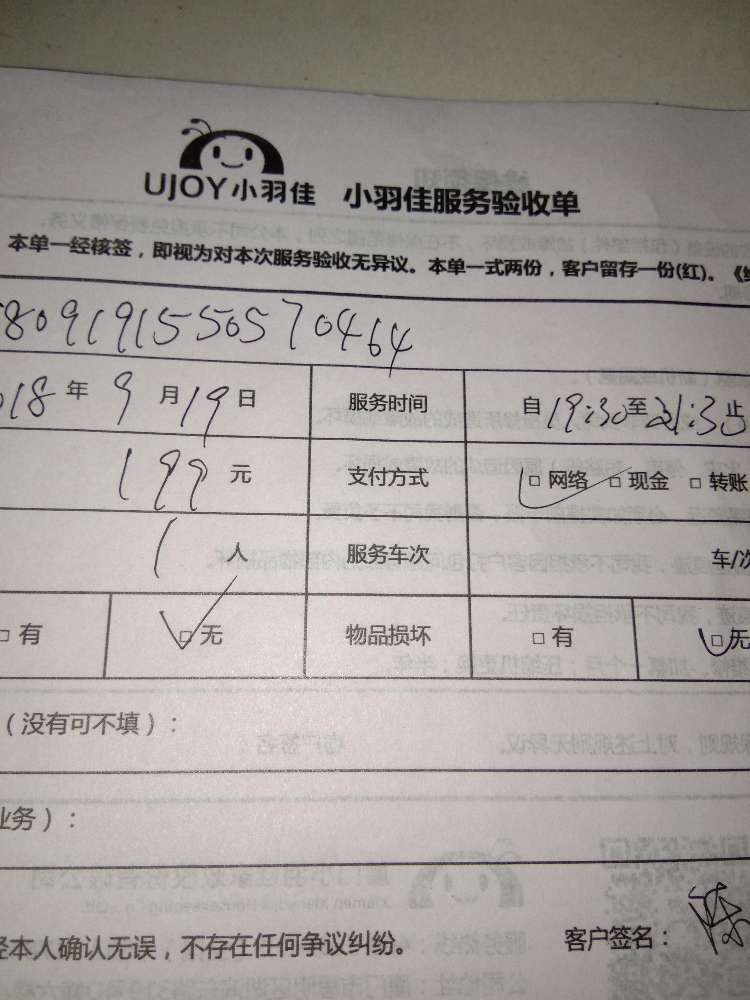 UJOY小羽佳 小羽佳服务验收单
本单一经核签，即视为对本次服务验收无异议。本单一式两份，客户留存一份(红)。
8091915505570464
018年9月19日 服务时间 自19:30至21:30止
199元 支付方式 □网络 □现金 □转账
1人 服务车次 车/次
□有 □无 物品损坏 □有 □无
（没有可不填）：
业务）：
经本人确认无误，不存在任何争议纠纷。 客户签名：